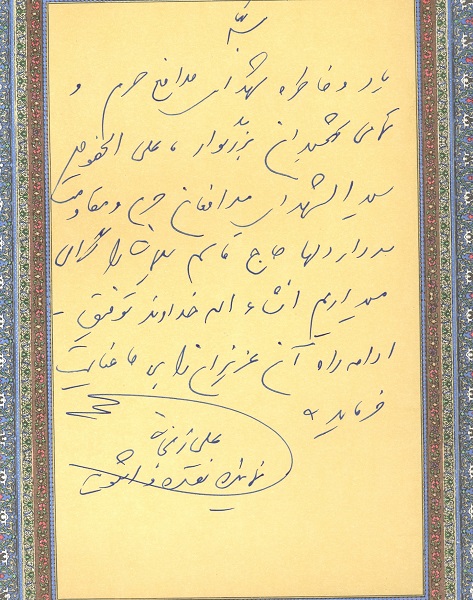 یاد و خاطره شهدای مدافع حرم و
تمامی شهیدان بزرگوار، علی الخصوص
سید الشهدای مدافعان حرم و مقاومت
سردار دلها حاج قاسم سلیمانی را گرامی
میداریم انشاء اله خداوند توفیق
ادامه راه آن عزیزان را به ما عنایت
فرماید
علی زنجانی
نماینده نقده و اشنویه